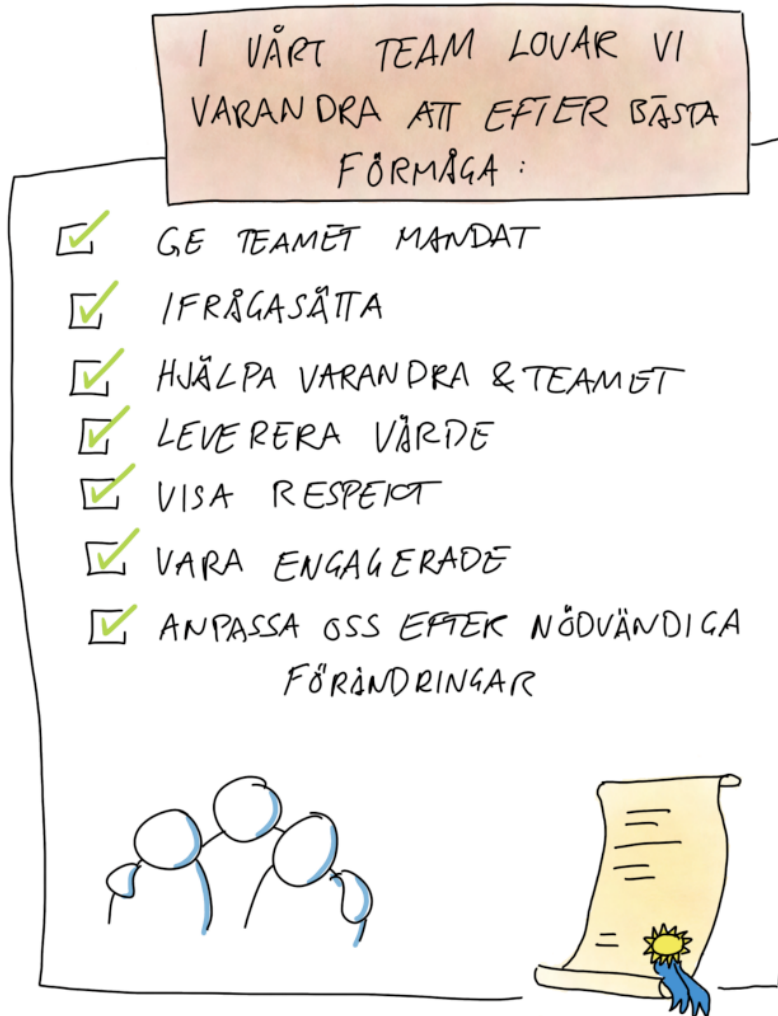 I VÅRT TEAM LOVAR VI
VARANDRA ATT EFTER BÄSTA
FÖRMÅGA:
GE TEAMET MANDAT
IFRÅGASÄTTA
HJÄLPA VARANDRA & TEAMET
LEVERERA VÄRDE
VISA RESPEKT
VARA ENGAGERADE
ANPASSA OSS EFTER NÖDVÄNDIGA
FÖRÄNDRINGAR